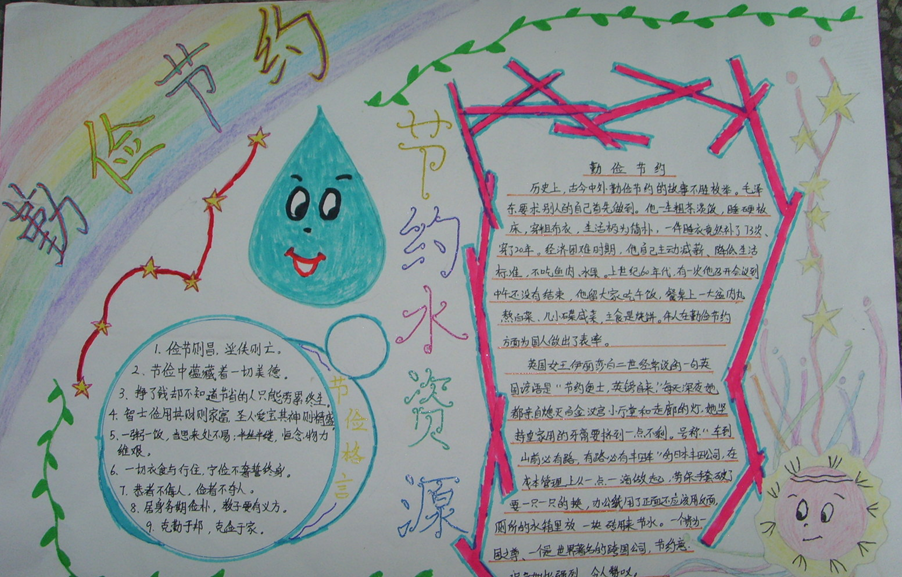 勤俭节约
节约水资源
节俭格言
1. 俭节则昌，淫佚则亡。
2. 节俭中蕴藏着一切美德。
3. 挣了钱却不知道节省的人只能劳累终生。
4. 智士俭用其财则家富 圣人爱宝其神则精盛
5. 一粥一饭，当思来处不易；半丝半缕，恒念物力
维艰。
6. 一切衣食与行住，宁俭不奢誓终身。
7. 恭者不侮人，俭者不夺人。
8. 居身务期俭朴，教子要有义方。
9. 克勤于邦，克俭于家。
勤 俭 节 约
历史上，古今中外勤俭节约的故事不胜枚举。毛泽
东要求别人的自己首先做到。他一生粗茶淡饭，睡硬板
床，穿粗布衣，生活极为简朴，一件睡衣竟然补了73次，
穿了20年。经济困难时期，他自己主动减薪、降低生活
标准，不吃鱼肉、水果。上世纪60年代，有一次他召开会议到
中午还没有结束，他留大家吃午饭，餐桌上一大盆肉丸
熬白菜，几小碟咸菜，主食是烧饼。伟人在勤俭节约
方面为国人做出了表率。
英国女王伊丽莎白二世经常说的一句英
国谚语是"节约便士，英镑自来"每天深夜她
都亲自熄灭白金汉宫小厅堂和走廊的灯，她坚
持皇家用的牙膏要挤到一点不剩。号称"车到
山前必有路，有路必有丰田车"的日本丰田公司，在
成本管理上从一点一滴做起，劳保手套破了
要一只一只的换，办公纸用了正面还应该用反面，
厕所的水箱里放一块砖用来节水。一个贵为一
国之尊、一个是世界著名的跨国公司，节约意